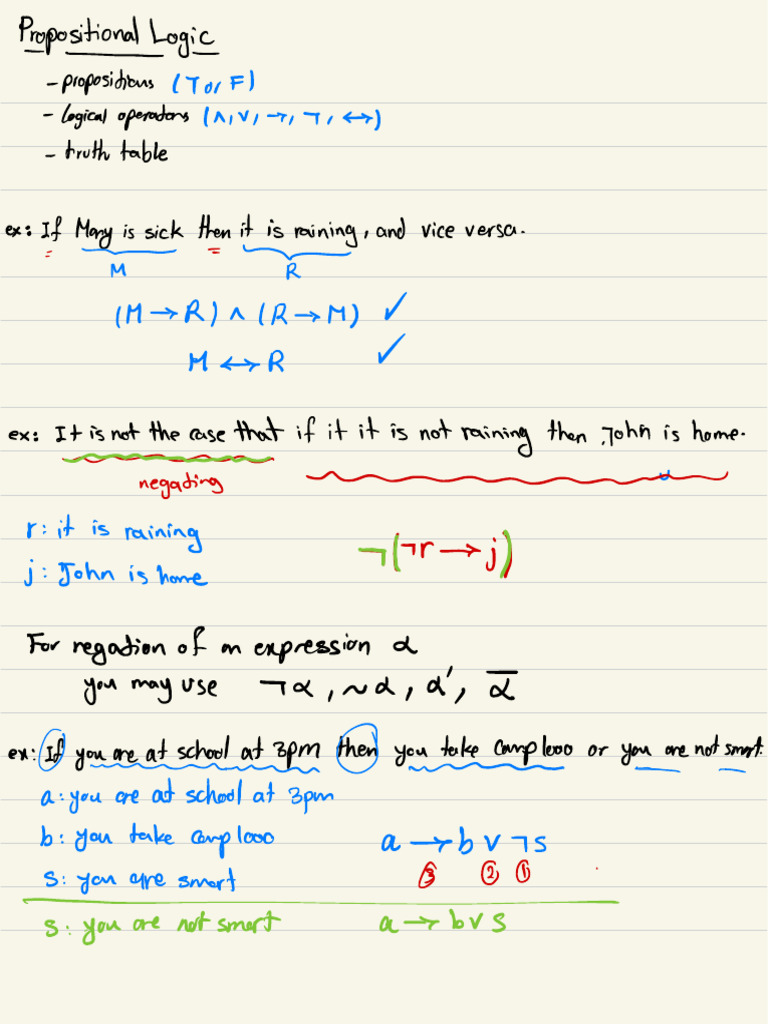 Propositional Logic
- propositions (T or F)
- logical operators (∧, ∨, →, ¬, ↔)
- truth table
ex: If Mary is sick then it is raining, and vice versa.
M R
(M → R) ∧ (R → M) ✓
M ↔ R ✓
ex: It is not the case that if it it is not raining then John is home.
negating
r: it is raining
j: John is home
¬(¬r → j)
For negation of an expression α
you may use ¬α, ~α, α', ᾱ
ex: If you are at school at 3pm then you take comp1000 or you are not smart.
a: you are at school at 3pm
b: you take comp1000
s: you are smart
a → b ∨ ¬s
③ ② ①
s: you are not smart
a → b ∨ s